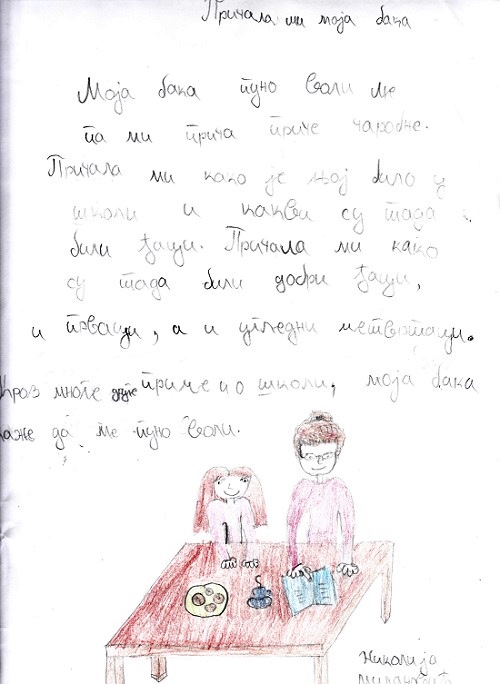 Причала ми моја бака
Моја бака пуно воли ме
па ми прича приче чаробне.
Причала ми како је њој било у
школи и какви су тада
били ђаци. Причала ми како
су тада били добри ђаци,
и прваци, а и угледни
Кроз многе приче и о школи, моја бака
каже да ме пуно воли.
Николија